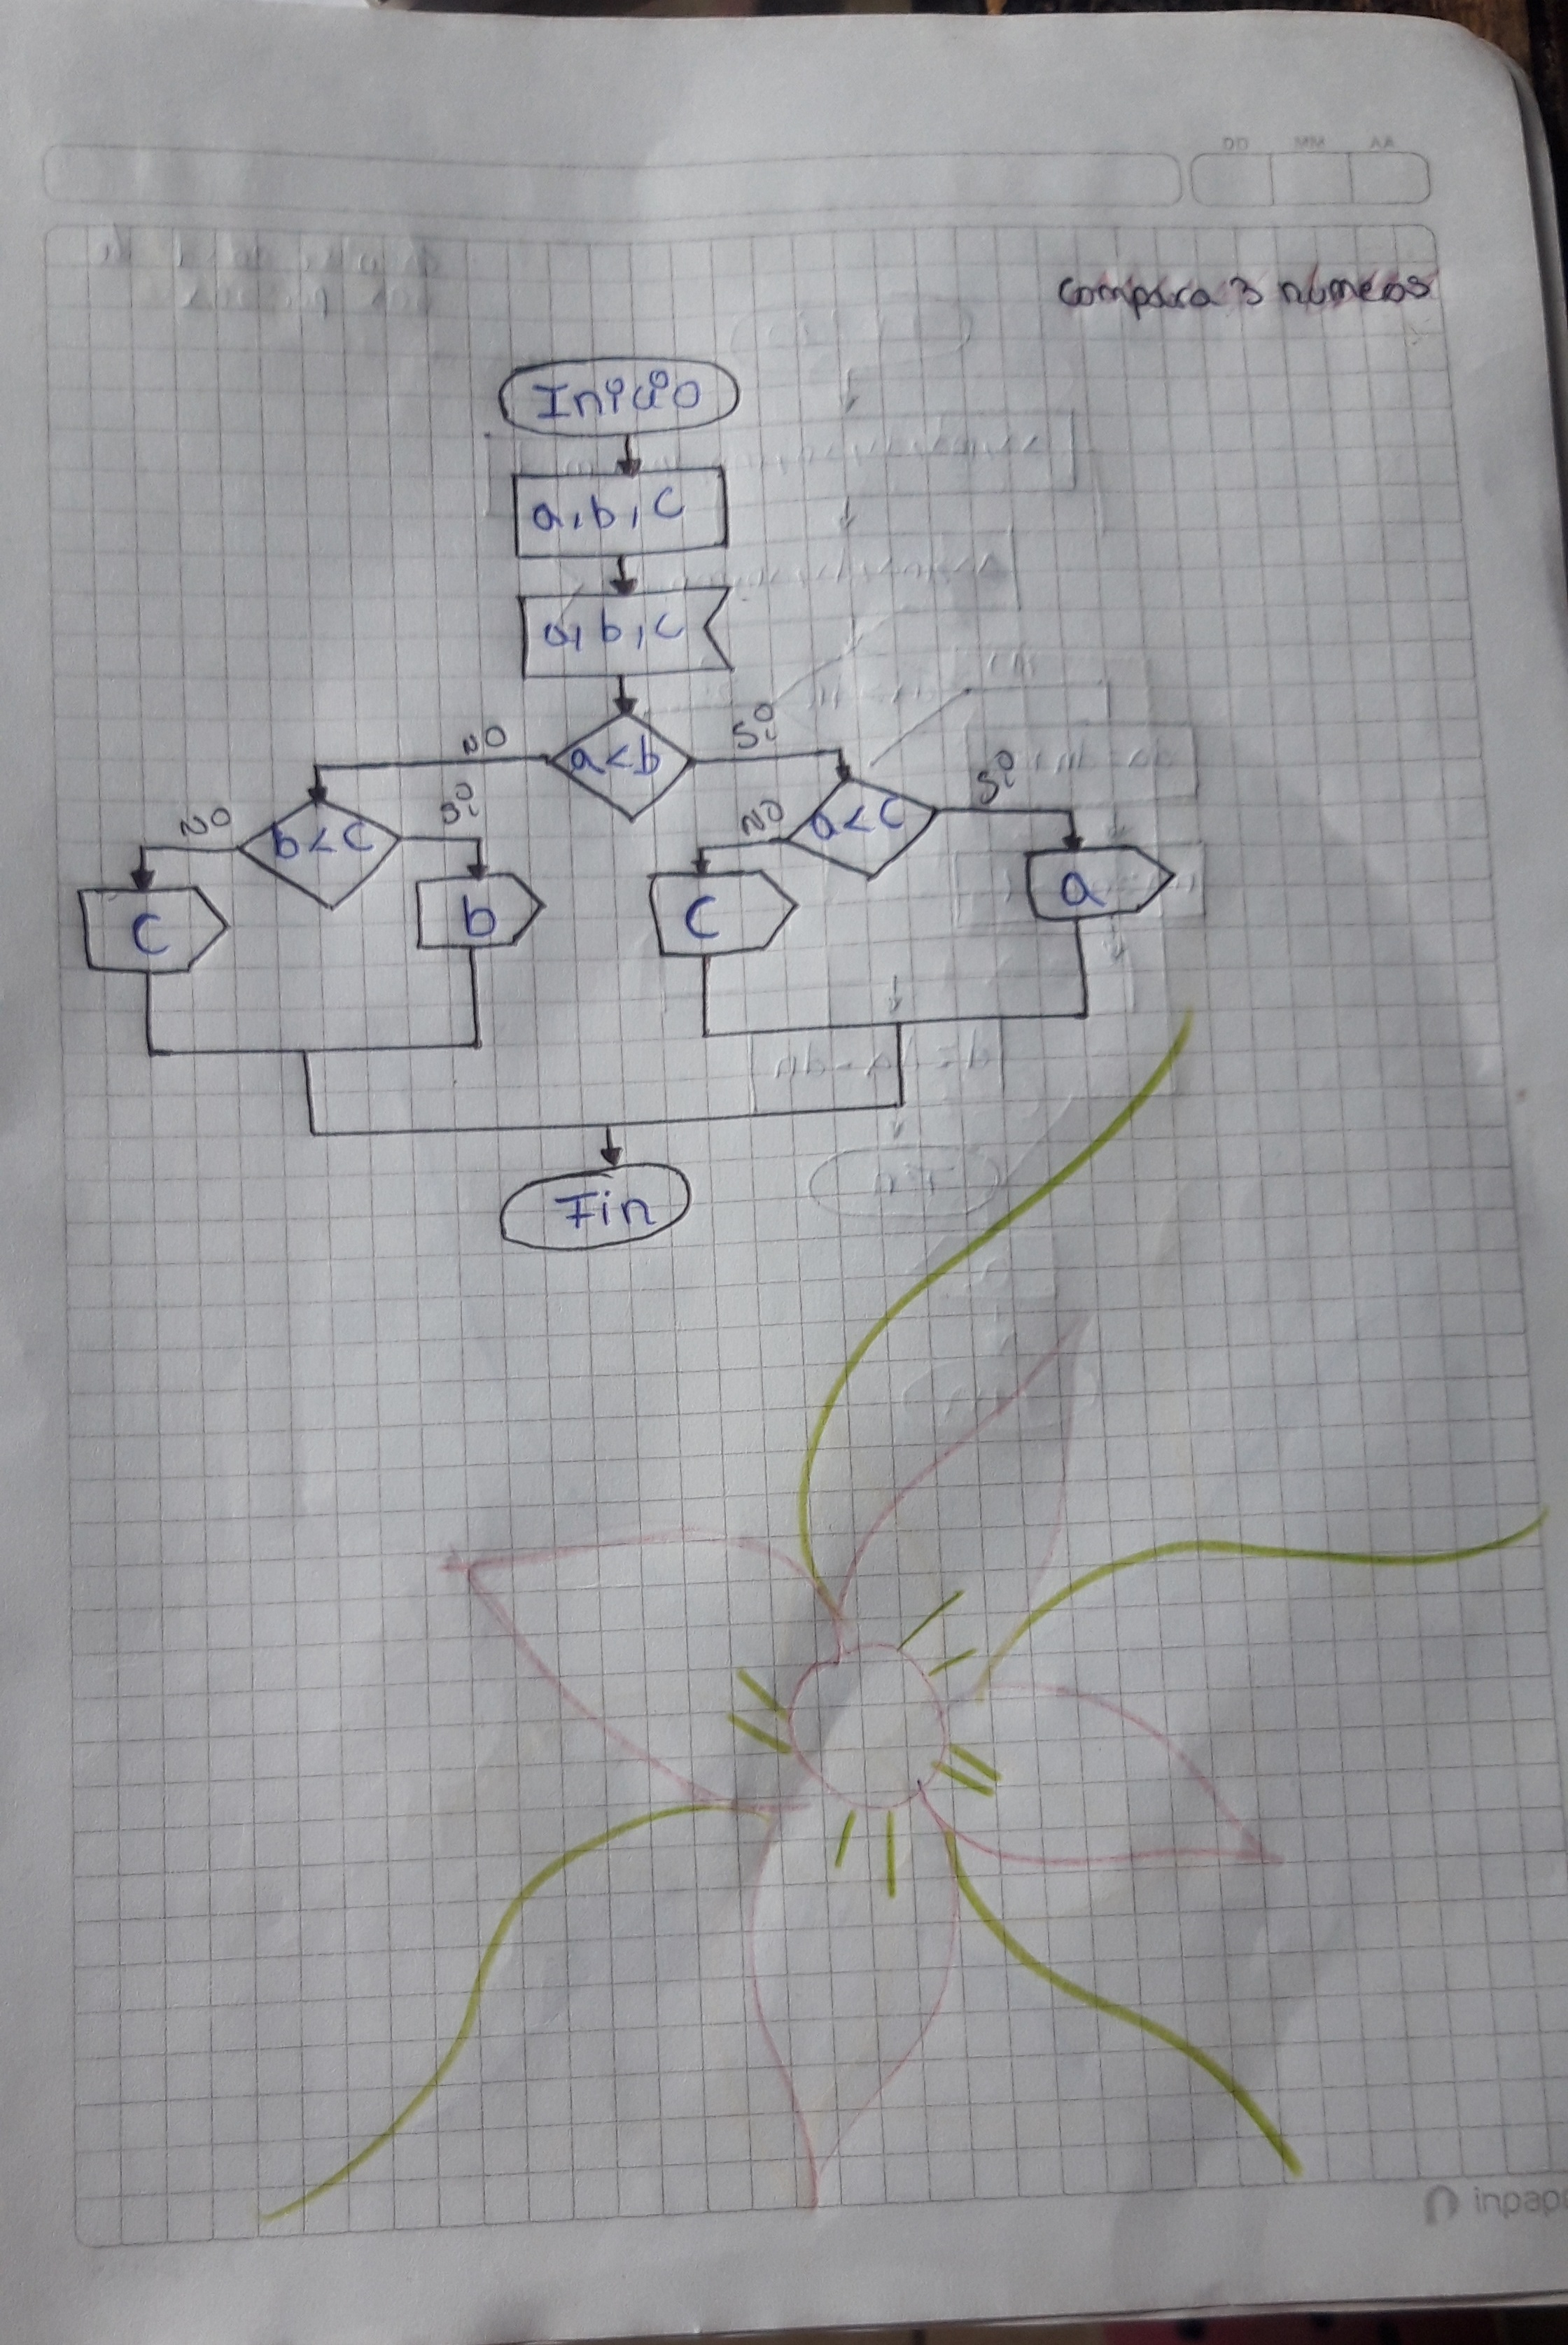 DD MM AA
compara 3 números
Inicio
a, b, c
a, b, c
a < b
NO
Si
b < c
NO
Si
a < c
NO
Si
c
b
c
a
Fin